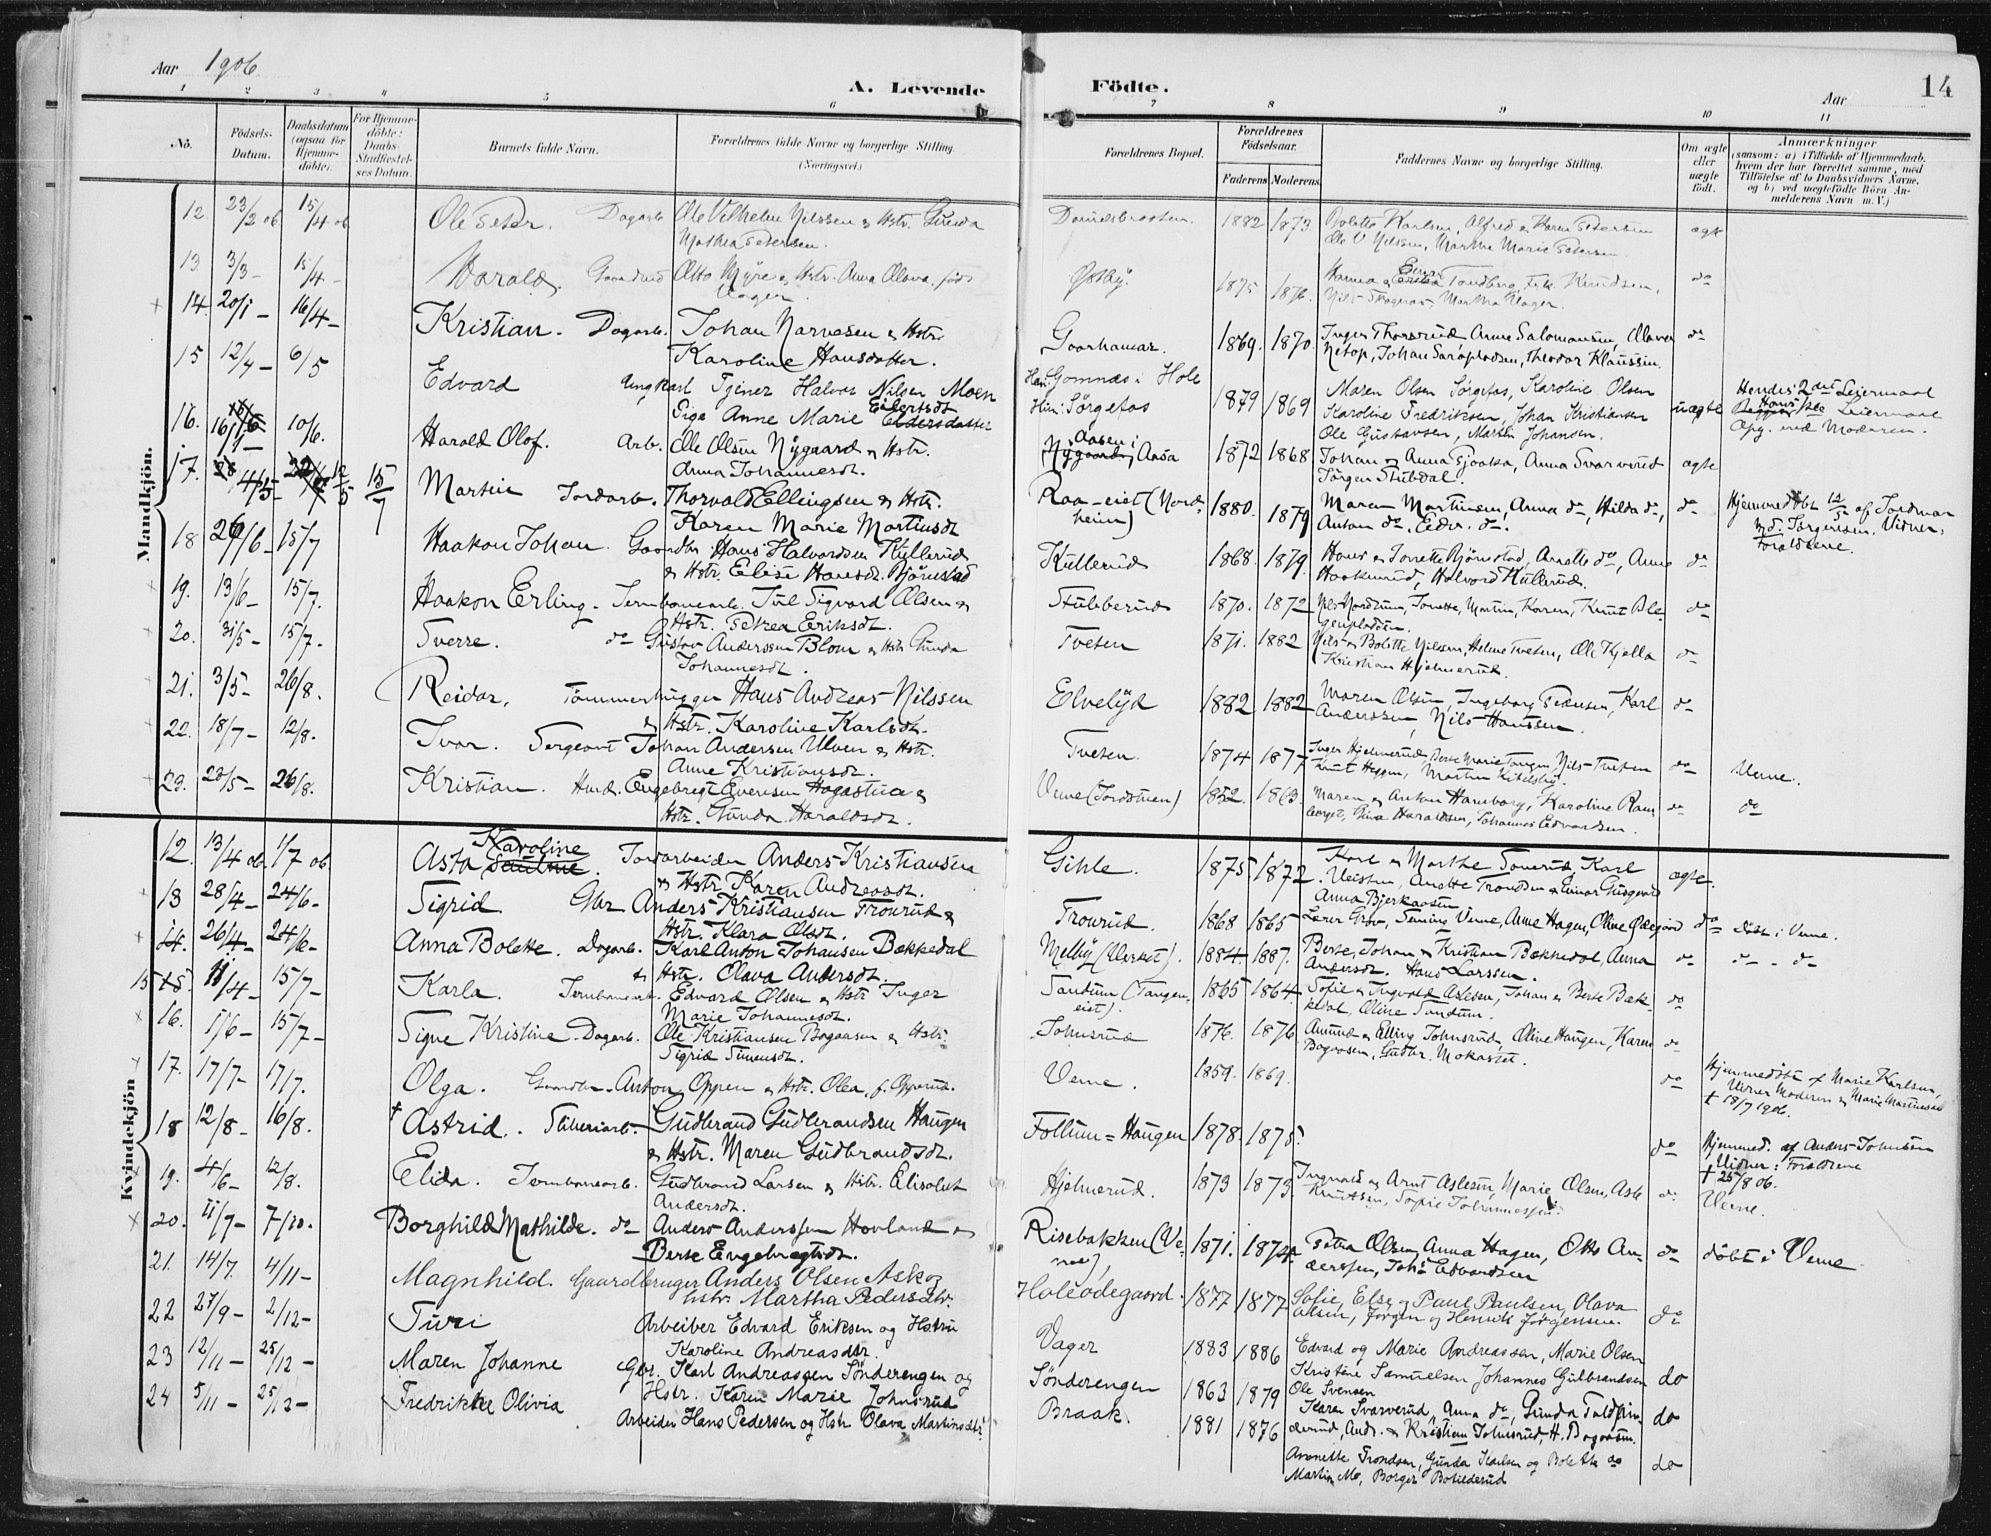 Aar 1906
A. Levende
Födte.
Aar
14
1 2 3 4 5 6 7 8 9 10 11
No. Födsels-Datum. Daabsdatum (ogsaa for Hjemmedöbte). For Hjemmedöbte: Daabs-Stadfæstelses Datum. Barnets fulde Navn. Forældrenes fulde Navne og borgerlige Stilling. (Næringsvei.)
Forældrenes Bopæl. Forældrenes Födselsaar. Faderens Moderens Faddernes Navne og borgerlige Stilling. Om ægte eller uægte födt. Anmærkninger (saasom: a) i Tilfælde af Hjemmedaab, hvem der har forrettet samme, med Tilföielse af to Daabsvidners Navne, og b) ved uægtefödte Börn Anmelderens Navn m. V.)
Mandkjön.
12. 23/2 06 15/4 06 Ole Peter. Dagarb. Ole Vilhelm Nilssen & Hstr. Gunda Mathea Petersen. 1882 1873 Bolette Karlsen, Alfred & Karen Petersen
Ole V Nilssen, Marthe Marie Petersen. ægt
13. 3/3 - 15/4 - Harald. Otto Myre & Hstr. Anna Olava, föd Hager. Østby 1875 1876 do
14. 20/1 - 16/4 - Kristian. Dagarb. Johan Narvesen & Hstr. Karoline Hansdatter. Gaarhamar. 1869. 1870. Inger Thorsrud, Anna Salomonsen, Olaves
Netop, Johan Theodor Klaussen. do
15 12/4 - 6/5 Edvard Ungkarl Tjener Halvor Nilsen Moen
Pige Anne Marie Eilertsdt Eldersdatter Han: Gomnæs i Hole
Hun: Sörgefos 1879 1869 Maren Olsen Sörgefos, Karoline Olsen
Karoline Fredriksen, Johan Kristiansen
Ole Gustavsen, Martin Johansen. uægte Hendes 2det Leiermaal
Hans 1ste Leiermaal
Opg. ved Moderen.
16. 10/6. Harald Olof. Arb. Ole Olsen Nygaard & Hstr. Anna Johannesdt. Aasen i
Nygaard, Aasa 1872 1868 Johan & Anna Tjoaka, Anna Svarverud
Jörgen Stubdal. ægte
17. 4/5 - 12/5 15/7 Martin Jordarb. Thorvald Ellingsen & Hstr. Karen Marie Martinsdt Raa-eiet (Nordheim) 1880. 1879 Maren Martinsen, Anna do, Hilda do,
Anton do. Eeder. do. do Hjemmedöbt 12/5 af Jordmor
Jörgensen, Vidner:
Forældrene.
18 26/6 - 15/7 Haakon Johan. Gaardbr. Hans Halvordsen Küllerud
& Hstr. Elise Hansdt. Björnstad Küllerud 1868. 1879. Hans & Jonette Björnstad, Annette do, Anne
Haakenrud, Halvord Küllerud. do
19. 13/6 - 15/7. Haakon Erling. Jernbanearb. Jul Sigvard Olsen &
Hstr. Petrea Eriksdt. Stubberud 1870. 1872 Nils Nordrum, Jonette, Martin, Karen, Knut Blegenpladsen. do
20. 31/5 - 15/7. Sverre. do Gustav Anderssen Blom & Hstr Gunda
Johannesdt. Tveten 1871. 1882 Nils & Bolette Nilssen, Helene Tveten, Ole Kjella
Kristian Hjelmerud. do
21. 3/5 - 26/8. Reidar. Tömmerhugger Hans Andreas Nilssen
& Hstr. Karoline Karlsdt. Elvelyd 1882 1882 Maren Olsen, Ingeborg Pedersen, Karl
Anderssen, Nils Hanssen. do
22. 18/7 - 12/8. Ivar. Sergeant Johan Andersen Ulven & Hstr.
Anne Kristiansdt. Tveten. 1874 1877 Inger Hjelmerud, Berte Marie Tangen, Nils Tveten
Knut Heggen, Martin Kihlsby. do Verne.
23. 28/5 - 26/8. Kristian. Husm. Engebregt Evensen Hagastua &
Hstr. Gunda Haraldsdt. Verne (Jordstuen) 1852. 1863. Maren & Anton Hamborg, Karoline Ramberget, Gina Haraldsen, Johannes Edvardsen. do do
Kvindekjön
12. 13/4 06 1/7 06 Asta Karoline. Jordarbeider Anders Kristiansen
& Hstr. Karen Andreasdt. Gihle. 1875 1872 Karl & Marthe Tonerud, Karl
Veisten, Anette Trondsen & Einar Gusgaard
Anna Bjerkaasen ægte.
13 28/4 - 24/6 - Sigrid. Gbr Anders Kristiansen Tronrud &
Hstr. Klara Olsdt. Tronrud. 1868 1865 Lærer Grov, Fenring Verne, Anne Hagen, Oline Ödegaard do döbt i Verne.
14. 26/4 - 24/6 - Anna Bolette. Dagarb. Karl Anton Johansen Bækkedal
& Hstr. Olava Andersdt. Melby (Vesret). 1884 1887. Berte, Johan & Kristian Bækkedal, Anna
Andersdt. Hans Larssen. do do - do
15 11/4 - 15/7 - Karla. Jernbanearb. Edvard Olsen & Hstr Inger
Marie Johannesdt. Tandum (Tangeneiet). 1865 1864 Sofie & Ingvald Aslesen, Johan & Berte Bækkedal, Oline Tandum. do
16. 1/6 - 15/7 - Signe Kristine. Dagarb. Ole Kristiansen Bagaasen & Hstr.
Sigrid Simensdt. Johnsrud 1876. 1876 Amund & Elling Johnsrud, Oline Haugen, Karen
Bagaasen, Gudbr. Mokastet. do
17. 17/7 - 17/7. Olga. Gaardbr. Anton Oppen & Hstr. Olea, f. Opperud. Verne. 1859. 1869. do Hjemmedöbt af Marie Karlsen,
Vidner Moderen & Marie Martinsen
† 18/7 1906.
18 12/8 - 16/8. † Astrid. Sliberiarb. Gudbrand Gudbrandsen Haugen
& Hstr. Maren Gudbrandsdt. Follum-Haugen 1878. 1875. do Hjemmed. af Anders Johnsen
Vidner: Forældrene
† 25/8 06.
19. 4/6 - 12/8. Elida. Jernbanearb. Gudbrand Larsen & Hstr. Elisabet
Andersdt. Hjelmerud. 1873 1873 Ingvald & Arnt Aslesen, Marie Olsen, Asle
Knutsen, Sofie Johannessen. do Verne.
20. 11/7 - 7/10. Borghild Mathilde. do Anders Anderssen Hovland &
Berte Engebregtsdt. Risebakken (Verne), 1871. 1874. Petra Olsen, Anna Hagen, Otto Anderssen, Johs Edvardsen do döbt i Verne
21. 14/7. 4/11 - Magnhild. Gaardbruger Anders Olsen Ask og
hstr. Martha Pedersdtr. Holeödegaard. 1877 1877 Sofie, Else og Paul Paulsen, Olava
Olsen, Jörgen og Henrik Jörgensen. do
22 27/9 - 2/12 - Turi Arbeiber Edvard Eriksen og Hstru
Karoline Andreasdtr. Vager 1883 1886 Edvard og Marie Andreassen, Marie Olsen
Kristine Samuelsen Johannes Gulbrandsen
Ole Svensen do
23 12/11 - 25/12 - Maren Johanne Gbr. Karl Andreassen Sönderengen og
Hstr. Karen Marie Johnsrud Sönderengen 1863 1879 Karen Svarverud, Anna do, Gunda
Andr. & Kristian Johnsrud, H. Bagaasen. do
24 5/11 - 25/12 - Fredrikke Olivia Arbeider Hans Pedersen og Hstr Olava Martinsdtr. Braak. 1881 1876 Annette Trondsen, Gunda Karlsen og Bolette do
Martin Mo, Borger Botilderud do